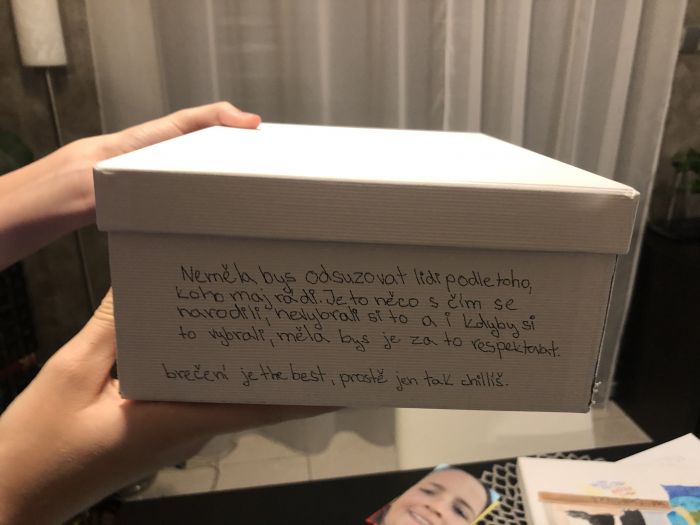 Neměla bys odsuzovat lidi podle toho,
koho maj rádi. Je to něco s čím se
narodili, nevybrali si to a i kdyby si
to vybrali, měla bys je za to respektovat.
brečení je the best, prostě jen tak chillíš.